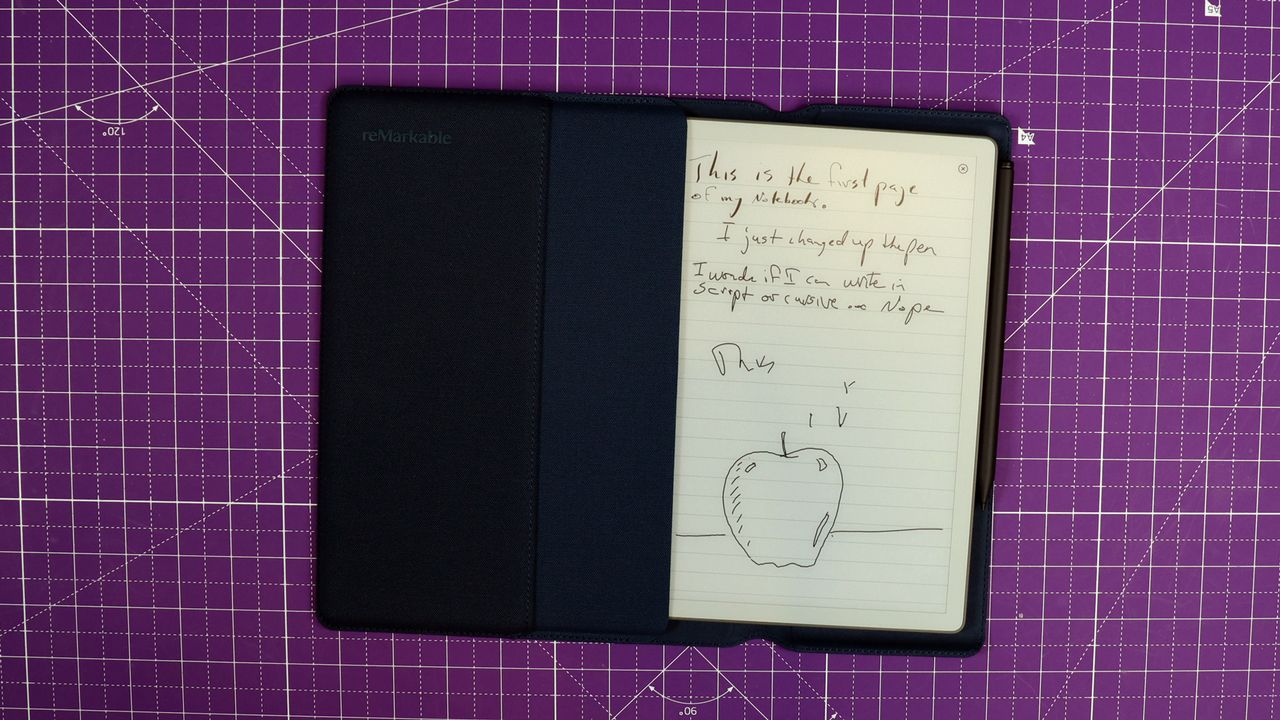 reMarkable
This is the first page
of my Notebook.
I just changed up the pen
I wonder if I can write in
script or cursive ... Nope
A5
A4
120°
90°